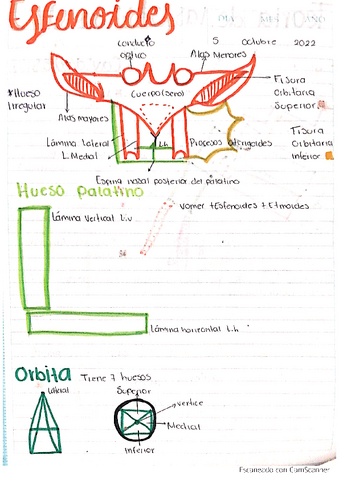 Esfenoides
5 octubre 2022
conducto
optico
Alas Menores
*Hueso
Irregular
Cuerpo (seno)
Fisura
Orbitaria
Superior
Alas mayores
Lámina lateral
L. Medial
L.h
Procesos pterigoides
Fisura
Orbitaria
Inferior
Espina nasal posterior del palatino
Hueso palatino
Lámina vertical L.v
Vomer +Esfenoides + Etmoides
Lámina horizontal L.h
Orbita Tiene 7 huesos
Lateral
Superior
vertice
Medial
Inferior
Escaneado con CamScanner